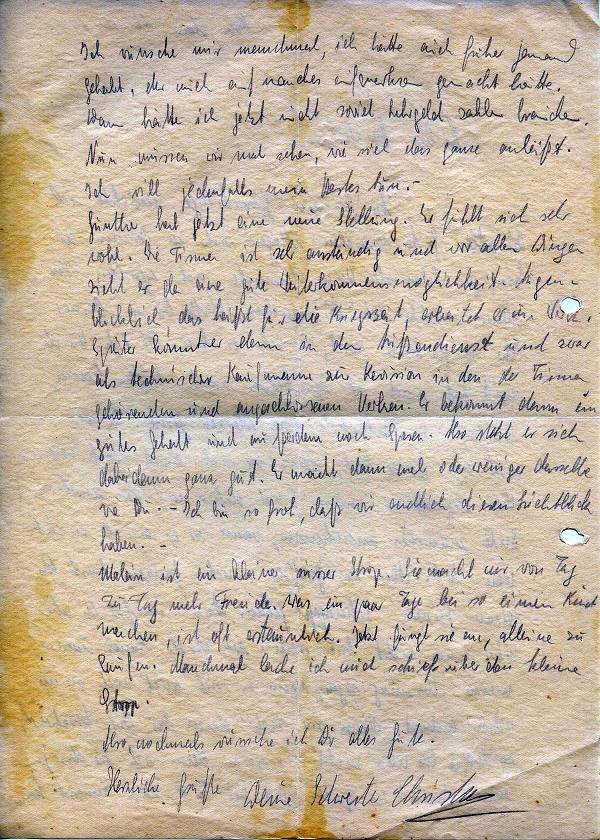 Ich wünsche mir manchmal, ich hätte auch früher jemand
gehabt, der mich auf manches aufmerksam gemacht hätte.
Dann hätte ich jetzt nicht soviel Lehrgeld zahlen brauchen.
Nun müssen wir mal sehen, wie sich das ganze anläßt.
Ich will jedenfalls mein Bestes tun.-
Günther hat jetzt eine neue Stellung. Er fühlt sich sehr
wohl. Die Firma ist sehr anständig und vor allen Dingen
sieht er da eine gute Weiterkommensmöglichkeit. Augen-
blicklich, das heißt für die Kriegszeit arbeitet er im
Später kommt er dann in den Außendienst und zwar
als technischer Kaufmann zur Revision in den der Firma
gehörenden und angeschlossenen Werken. Er bekommt dann ein
gutes Gehalt und außerdem noch Spesen. Also steht er sich
dabei dann ganz gut. Er macht dann mehr oder weniger dasselbe
wie Du. - Ich bin so froh, daß wir endlich diesen Lichtblick
haben. -
ist ein kleiner süsser Stropp. Sie macht mir von Tag
zu Tag mehr Freude. Was ein paar Tage bei so einem Kind
machen, ist oft erstaunlich. Jetzt fängt sie an, alleine zu
laufen. Manchmal lache ich mich schief über den kleinen
Stropp.
Also, nochmals wünsche ich Dir alles Gute.
Herzliche Grüße Deine Schwester Christa